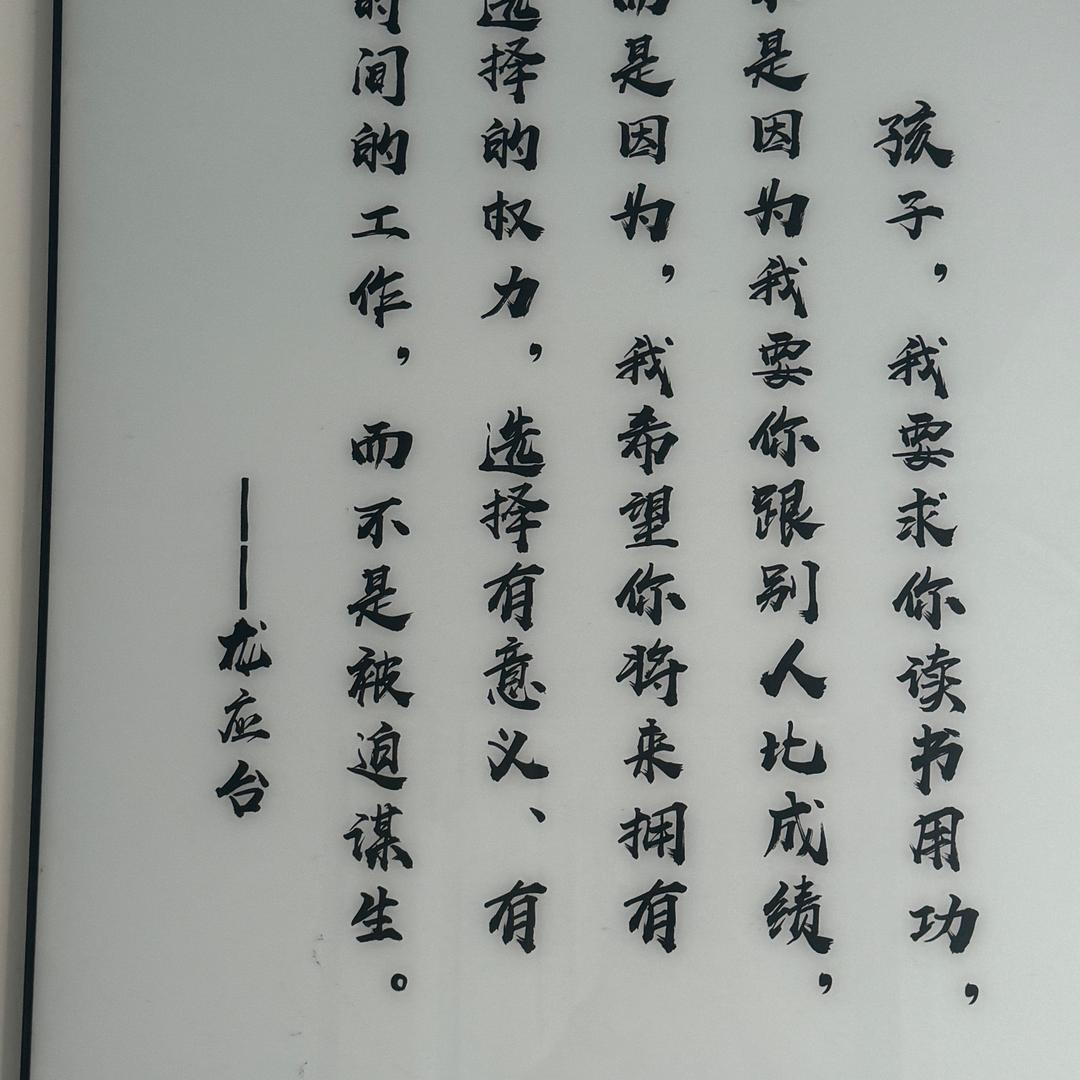 孩子，我要求你读书用功，
不是因为我要你跟别人比成绩，
而是因为，我希望你将来拥有
选择的权力，选择有意义、有
时间的工作，而不是被迫谋生。
——龙应台